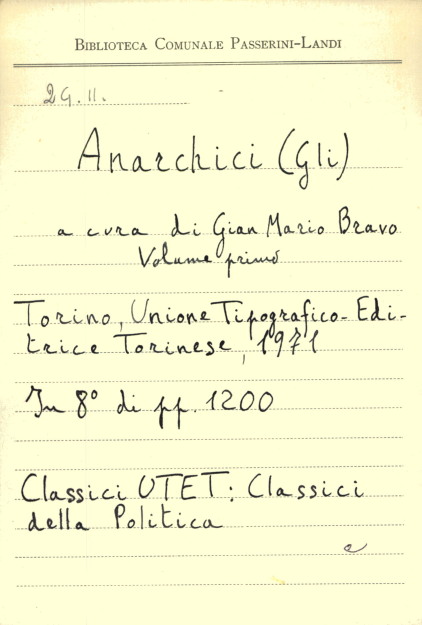 BIBLIOTECA COMUNALE PASSERINI-LANDI
2G.11.
Anarchici (Gli)
a cura di Gian Mario Bravo
Volume primo
Torino, Unione Tipografico-Edi-
trice Torinese, 1971
In 8° di pp. 1200
Classici UTET: Classici
della Politica